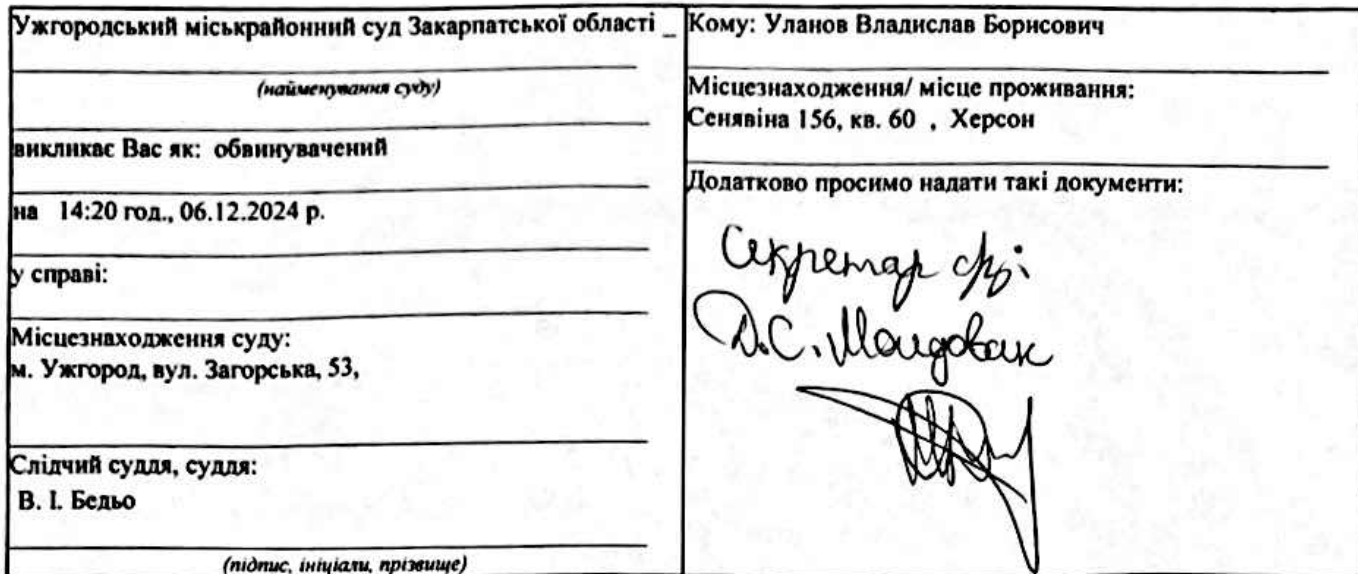 Ужгородський міськрайонний суд Закарпатської області _
(найменування суду)
викликає Вас як: обвинувачений
на 14:20 год., 06.12.2024 р.
у справі:
Місцезнаходження суду:
м. Ужгород, вул. Загорська, 53,
Слідчий суддя, суддя:
В. І. Бедьо
(підпис, ініціали, прізвище)
Кому: Уланов Владислав Борисович
Місцезнаходження/ місце проживання:
Сенявіна 156, кв. 60 , Херсон
Додатково просимо надати такі документи:
Секретар с/з:
Д.С.